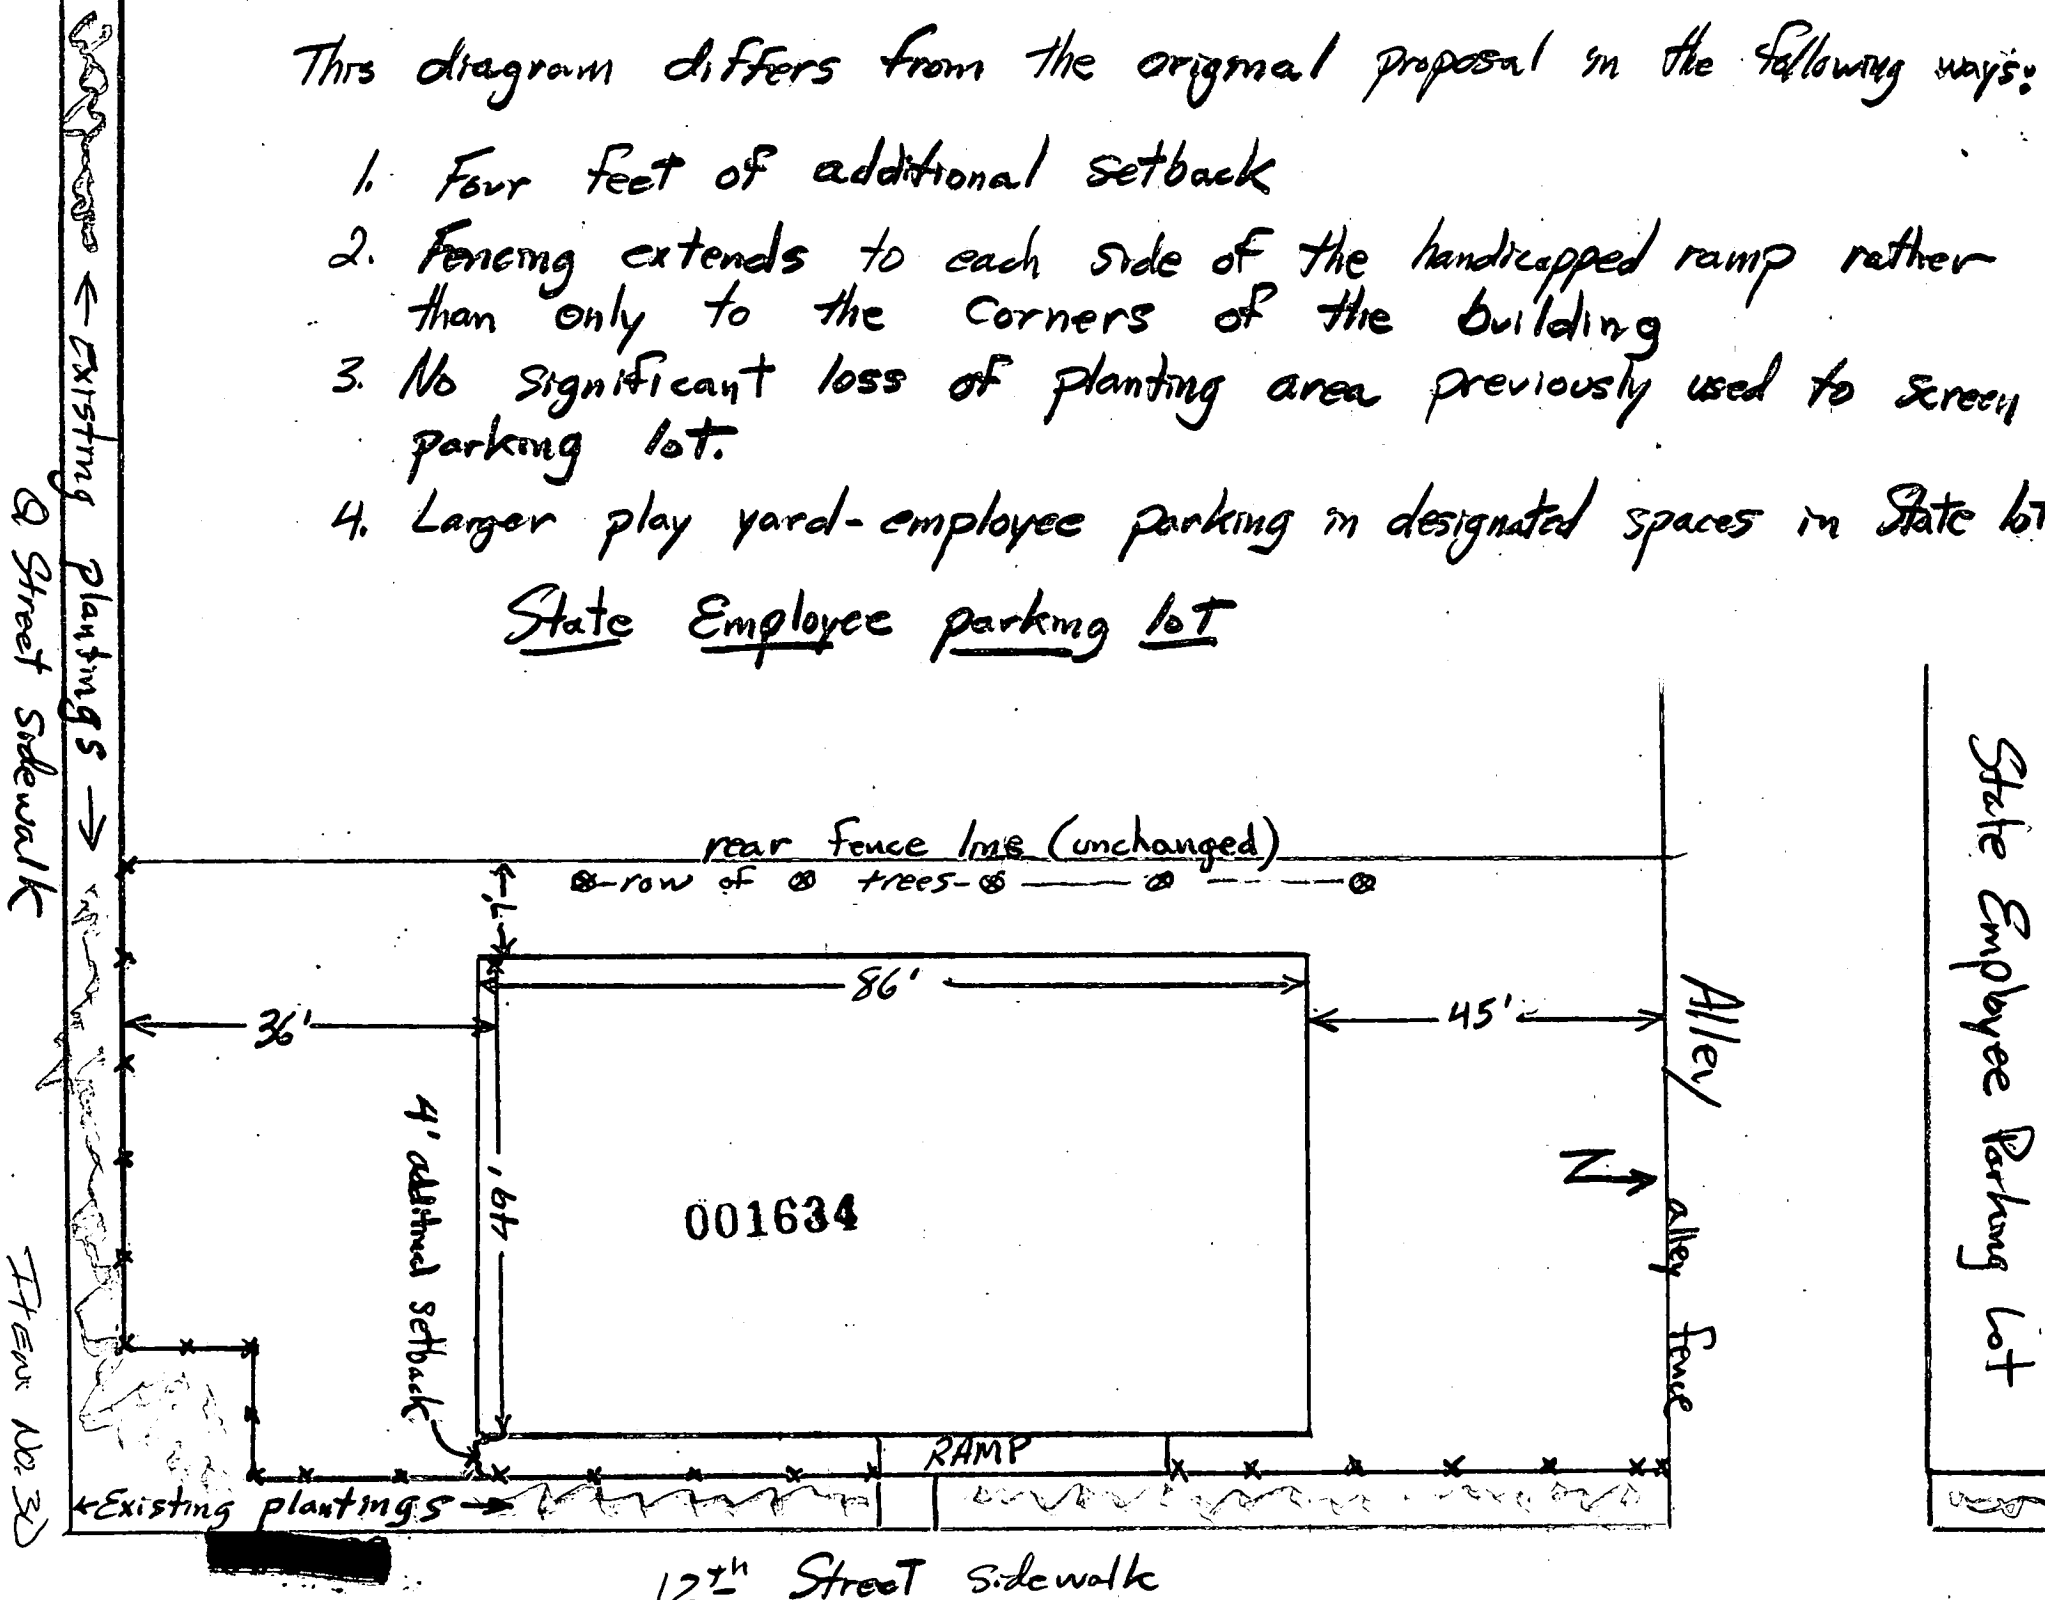 This diagram differs from the original proposal in the following ways:
1. Four feet of additional setback
2. Fencing extends to each side of the handicapped ramp rather
than only to the corners of the building
3. No significant loss of planting area previously used to screen
parking lot.
4. Larger play yard-employee parking in designated spaces in State lot
State Employee parking lot
← Existing plantings →
Q Street Sidewalk
rear fence line (unchanged)
row of trees
86'
36'
45'
Alley
State Employee Parking Lot
4' additional setback
49'
001634
N
alley fence
RAMP
←Existing plantings→
12th Street Sidewalk
ITEM NO. 30